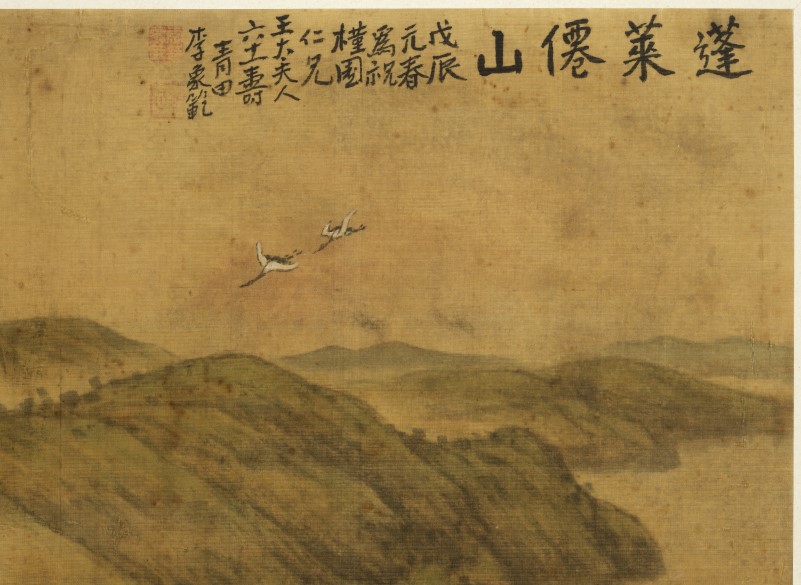 蓬萊僊山
戊辰
元春
為祝
槿園
仁兄
王大夫人
六十壽
青田
李象範